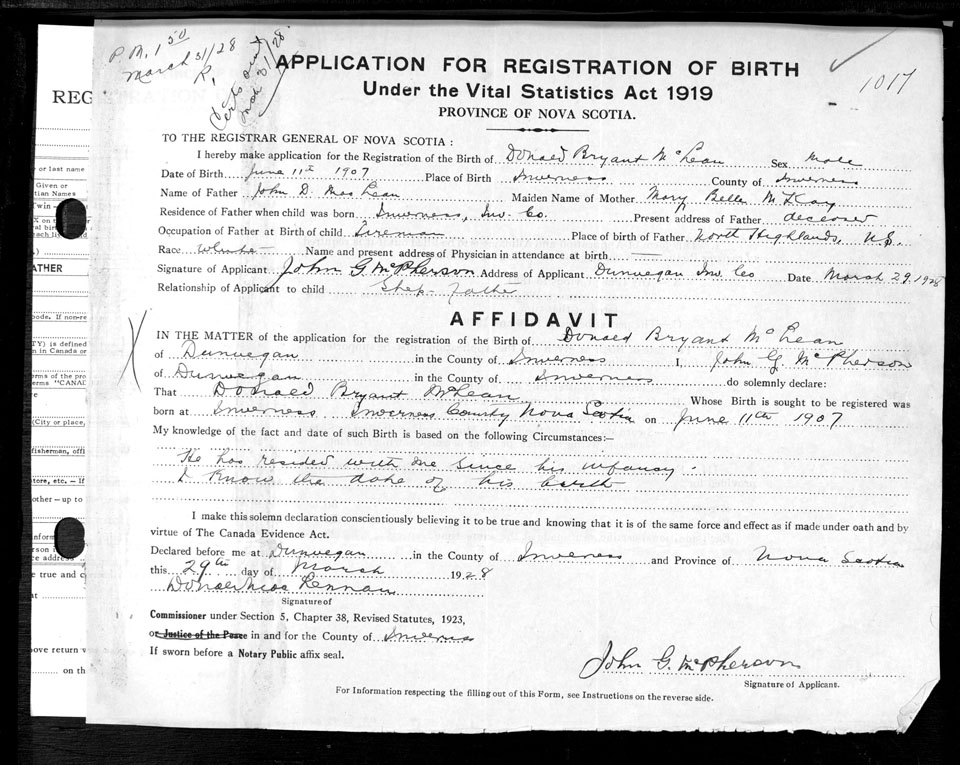 P.M. 1 50
March 31/28
R.
Certs out
Mch 31/28
1017
APPLICATION FOR REGISTRATION OF BIRTH
Under the Vital Statistics Act 1919
PROVINCE OF NOVA SCOTIA.
TO THE REGISTRAR GENERAL OF NOVA SCOTIA :
I hereby make application for the Registration of the Birth of Donald Bryant McLean Sex Male
Date of Birth June 11th 1907 Place of Birth Inverness County of Inverness
Name of Father John D. MacLean Maiden Name of Mother Mary Belle McKay
Residence of Father when child was born Inverness, Inv. Co. Present address of Father deceased
Occupation of Father at Birth of child Fireman Place of birth of Father North Highlands, N.S.
Race White Name and present address of Physician in attendance at birth —
Signature of Applicant John G McPherson Address of Applicant Dunvegan Inv Co Date March 29, 1928
Relationship of Applicant to child Step-Father
AFFIDAVIT
IN THE MATTER of the application for the registration of the Birth of Donald Bryant McLean
of Dunvegan in the County of Inverness I, John G. McPherson
of Dunvegan in the County of Inverness do solemnly declare:
That Donald Bryant McLean Whose Birth is sought to be registered was
born at Inverness Inverness County Nova Scotia on June 11th 1907
My knowledge of the fact and date of such Birth is based on the following Circumstances:—
He has resided with me since his infancy.
I know the date of his birth
I make this solemn declaration conscientiously believing it to be true and knowing that it is of the same force and effect as if made under oath and by
virtue of The Canada Evidence Act.
Declared before me at Dunvegan in the County of Inverness and Province of Nova Scotia
this 29th day of March 1928
Donald MacLennan
Signature of
Commissioner under Section 5, Chapter 38, Revised Statutes, 1923,
or Justice of the Peace in and for the County of Inverness
If sworn before a Notary Public affix seal.
John G. McPherson
Signature of Applicant.
For Information respecting the filling out of this Form, see Instructions on the reverse side.
REG
or last name
Given or
tian Names
Twin
ATHER
ode. If non-re
TY) is defined
n in Canada or
erms of the pro
erms "CANAD
(City or place,
fisherman, offi
tore, etc. — If
other — up to
inform
erson i
ce address
e true and c
at
ove return v
on th